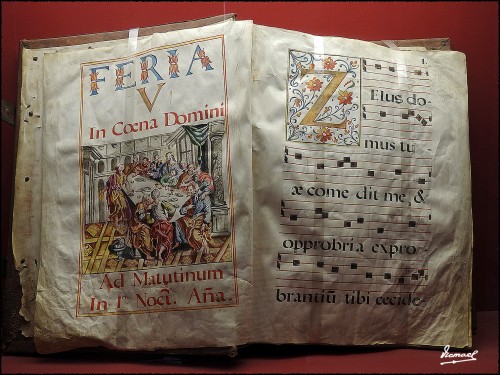 FERIA
V
In Cœna Domini
Ad Matutinum
In 1º Noct. Aña.
1.
Zelus do-
mus tu-
æ come dit me, &
opprobria expro-
brantiũ tibi cecide-